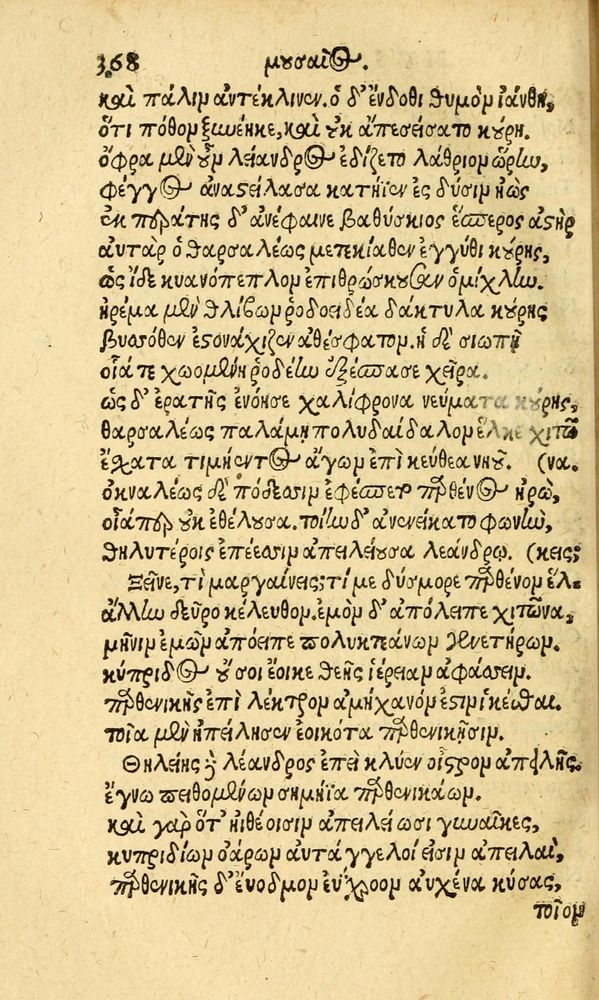 368 μουσαῖος.
καὶ πάλιν ἀντέκλινεν. ὁ δ' ἔνδοθι θυμὸν ἰάνθη,
ὅτι πόθον ξυνέηκε, καὶ οὐκ ἀπεσείσατο κούρη.
ὄφρα μὲν οὖν λείανδρος ἐδίζετο λάθριον ὥρην,
φέγγος ἀναστείλασα κατήϊεν ἐς δύσιν ἠώς
ἐκ περάτης δ' ἀνέφαινε βαθύσκιος ἕσπερος ἀστήρ
αὐτὰρ ὁ θαρσαλέως μετεκίαθεν ἐγγύθι κούρης,
ὡς ἴδε κυανόπεπλον ἐπιθρώσκουσαν ὀμίχλην.
ἠρέμα μὲν θλίβων ῥοδοειδέα δάκτυλα κούρης
βυσσόθεν ἐστονάχιζεν ἀθέσφατον. ἡ δὲ σιωπῇ
οἷά τε χωομένη ῥοδέην ἐξέσπασε χεῖρα.
ὡς δ' ἐρατῆς ἐνόησε χαλίφρονα νεύματα κούρης,
θαρσαλέως παλάμη πολυδαίδαλον ἕλκε χιτῶ
ἔσχατα τιμήεντος ἄγων ἐπὶ κεύθεα νηοῦ. (να.
ὀκναλέως δὲ πόδεσσιν ἐφέσπετο παρθένος ἡρώ,
οἷά περ οὐκ ἐθέλουσα. τοίην δ' ἀνενείκατο φωνήν,
θηλυτέροις ἐπέεσσιν ἀπειλείουσα λεάνδρῳ. (κεις;
Ξεῖνε, τί μαργαίνεις; τί με δύσμορε παρθένον ἕλ-
ἄλλην δεῦρο κέλευθον. ἐμὸν δ' ἀπόλειπε χιτῶνα,
μῆνιν ἐμῶν ἀπόειπε πολυκτεάνων γενετήρων.
κύπριδος οὔ σοι ἔοικε θεῆς ἱέρειαν ἀφάσσειν.
παρθενικῆς ἐπὶ λέκτρον ἀμήχανόν ἐστιν ἱκέσθαι.
τοῖα μὲν ἠπείλησεν ἐοικότα παρθενικῇσιν.
Θηλείης δὲ λέανδρος ἐπεὶ κλύεν οἶστρον ἀπειλῆς.
ἔγνω πειθομένων σημήϊα παρθενικάων.
καὶ γὰρ ὅτ' ἠιθέοισιν ἀπειλείωσι γυναῖκες,
κυπριδίων ὀάρων αὐτάγγελοί εἰσιν ἀπειλαί,
παρθενικῆς δ' ἔνοδμον ἐύχροον αὐχένα κύσας,
τοῖον